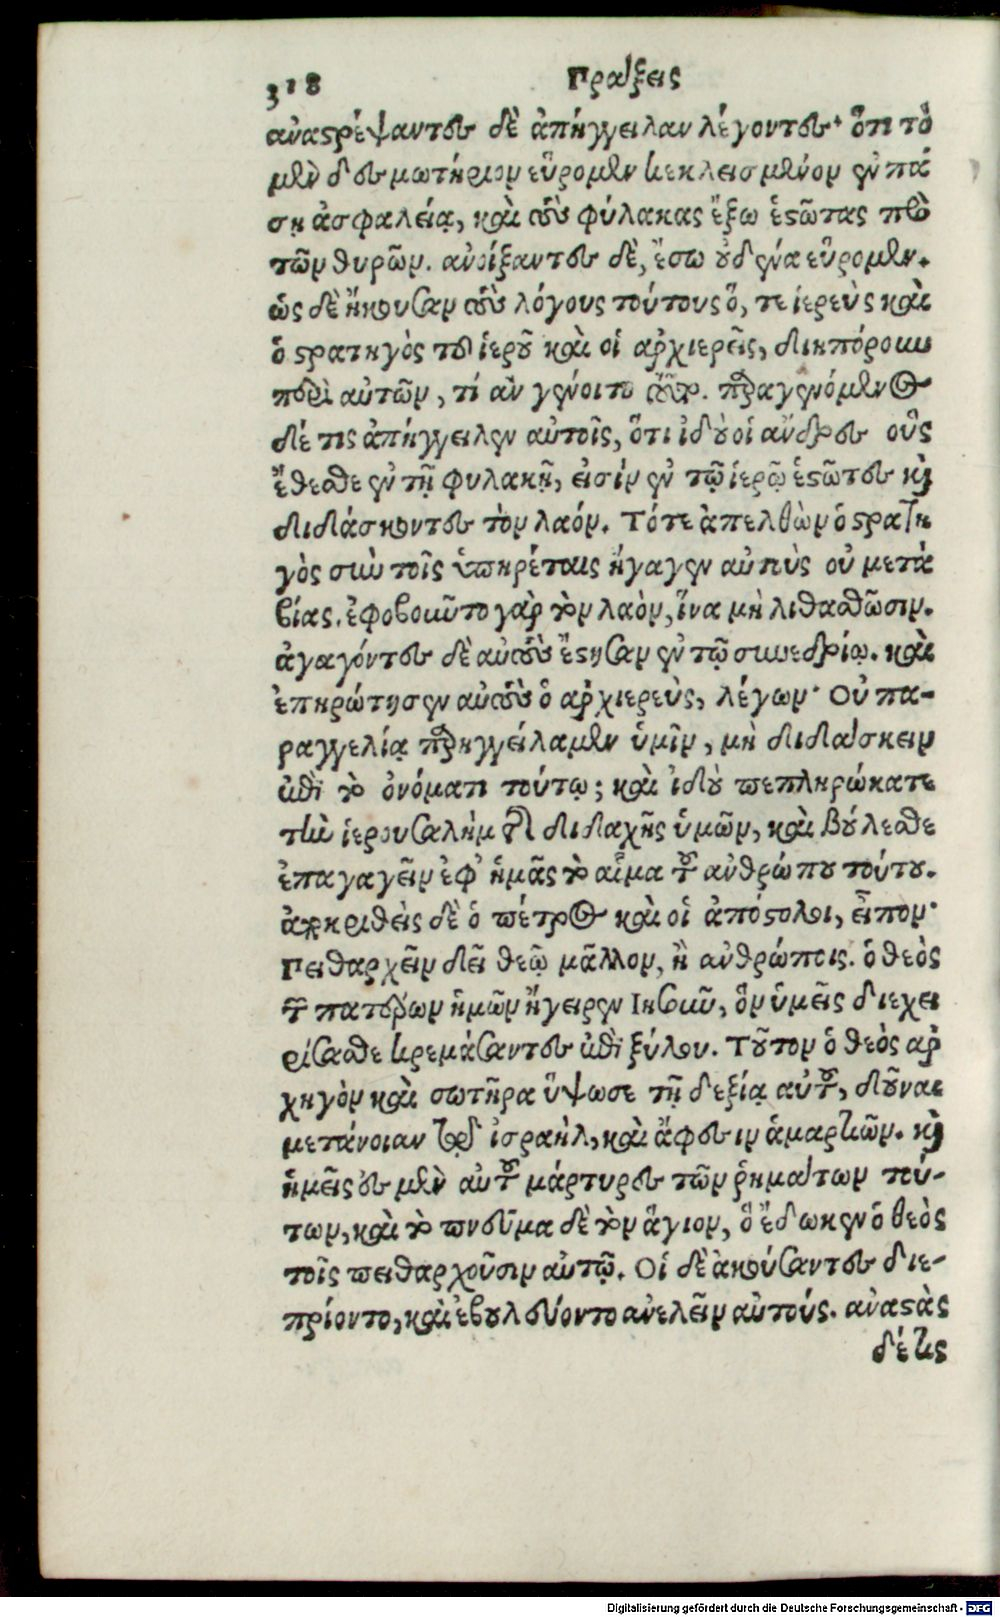 318 Πράξεις
ἀναστρέψαντες δὲ ἀπήγγειλαν λέγοντες· ὅτι τὸ
μὲν δεσμωτήριον εὕρομεν κεκλεισμένον ἐν πά
σῃ ἀσφαλείᾳ, καὶ τοὺς φύλακας ἔξω ἑστῶτας πρὸ
τῶν θυρῶν. ἀνοίξαντες δὲ, ἔσω οὐδένα εὕρομεν.
ὡς δὲ ἤκουσαν τοὺς λόγους τούτους ὅ, τε ἱερεὺς καὶ
ὁ στρατηγὸς τοῦ ἱεροῦ καὶ οἱ ἀρχιερεῖς, διηπόρουν
περὶ αὐτῶν, τί ἂν γένοιτο τοῦτο. παραγενόμενος
δέ τις ἀπήγγειλεν αὐτοῖς, ὅτι ἰδοὺ οἱ ἄνδρες οὓς
ἔθεσθε ἐν τῇ φυλακῇ, εἰσὶν ἐν τῷ ἱερῷ ἑστῶτες καὶ
διδάσκοντες τὸν λαόν. Τότε ἀπελθὼν ὁ στρατη
γὸς σὺν τοῖς ὑπηρέταις ἤγαγεν αὐτοὺς οὐ μετὰ
βίας. ἐφοβοῦντο γὰρ τὸν λαὸν, ἵνα μὴ λιθασθῶσιν.
ἀγαγόντες δὲ αὐτοὺς ἔστησαν ἐν τῷ συνεδρίῳ. καὶ
ἐπηρώτησεν αὐτοὺς ὁ ἀρχιερεὺς, λέγων· Οὐ πα-
ραγγελίᾳ παρηγγείλαμεν ὑμῖν, μὴ διδάσκειν
ἐπὶ τῷ ὀνόματι τούτῳ; καὶ ἰδοὺ πεπληρώκατε
τὴν ἱερουσαλὴμ τῆς διδαχῆς ὑμῶν, καὶ βούλεσθε
ἐπαγαγεῖν ἐφ’ ἡμᾶς τὸ αἷμα τοῦ ἀνθρώπου τούτου.
ἀποκριθεὶς δὲ ὁ πέτρος καὶ οἱ ἀπόστολοι, εἶπον·
Πειθαρχεῖν δεῖ θεῷ μᾶλλον, ἢ ἀνθρώποις. ὁ θεὸς
τῶν πατέρων ἡμῶν ἤγειρεν Ἰησοῦν, ὃν ὑμεῖς διεχει
ρίσασθε κρεμάσαντες ἐπὶ ξύλου. Τοῦτον ὁ θεὸς ἀρ
χηγὸν καὶ σωτῆρα ὕψωσε τῇ δεξίᾳ αὐτοῦ, δοῦναι
μετάνοιαν τῷ ἰσραὴλ, καὶ ἄφεσιν ἁμαρτιῶν. καὶ
ἡμεῖς ἐσμὲν αὐτοῦ μάρτυρες τῶν ῥημάτων τού-
των, καὶ τὸ πνεῦμα δὲ τὸ ἅγιον, ὃ ἔδωκεν ὁ θεὸς
τοῖς πειθαρχοῦσιν αὐτῷ. Οἱ δὲ ἀκούσαντες διε-
πρίοντο, καὶ ἐβουλεύοντο ἀνελεῖν αὐτούς. ἀναστὰς
δέ τις
Digitalisierung gefördert durch die Deutsche Forschungsgemeinschaft - DFG